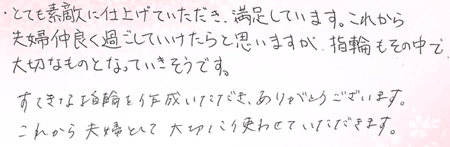 ・とても素敵に仕上げていただき、満足しています。これから
夫婦仲良く過ごしていけたらと思いますが、指輪もその中で
大切なものとなっていきそうです。
すてきな指輪を作成いただき、ありがとうございます。
これから夫婦として大切に使わせていただきます。